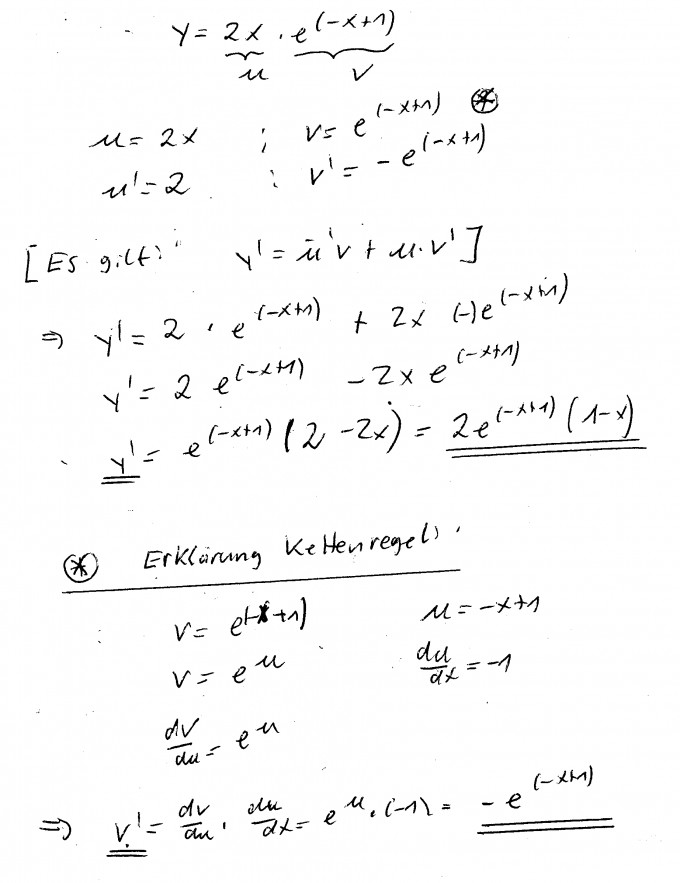 y = 2x · e^(-x+1)
u v
u = 2x ; v = e^(-x+1) ⊛
u' = 2 ; v' = - e^(-x+1)
[Es gilt: y' = u'v + u·v']
⇒ y' = 2 · e^(-x+1) + 2x (-)e^(-x+1)
y' = 2 e^(-x+1) - 2x e^(-x+1)
y' = e^(-x+1) (2 - 2x) = 2e^(-x+1) (1-x)
⊛ Erklärung Kettenregel:
v = e^(-x+1) u = -x+1
v = e^u du/dx = -1
dv/du = e^u
⇒ v' = dv/du · du/dx = e^u · (-1) = - e^(-x+1)